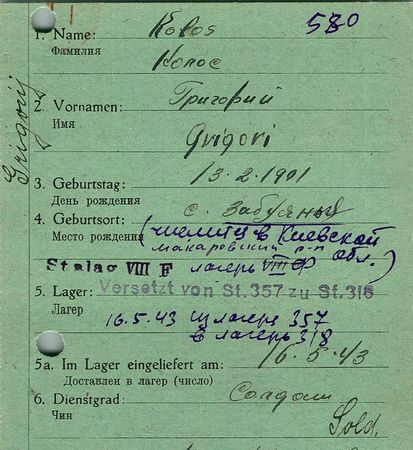 580
1. Name: Kolos
Фамилия Колос
Grigorij
2. Vornamen: Григорий
Имя
Grigori
13.2.1901
3. Geburtstag:
День рождения
4. Geburtsort: с. Забуянье
Место рождения (числится в Киевской
макаровский р-н обл.)
Stalag VIII F лагерь VIII Ф
5. Lager: Versetzt von St.357 zu St.318
Лагерь
16.5.43 из лагеря 357
в лагерь 318
5a. Im Lager eingeliefert am: 16.5.43
Доставлен в лагерь (число)
6. Dienstgrad: Солдат
Чин
Sold.